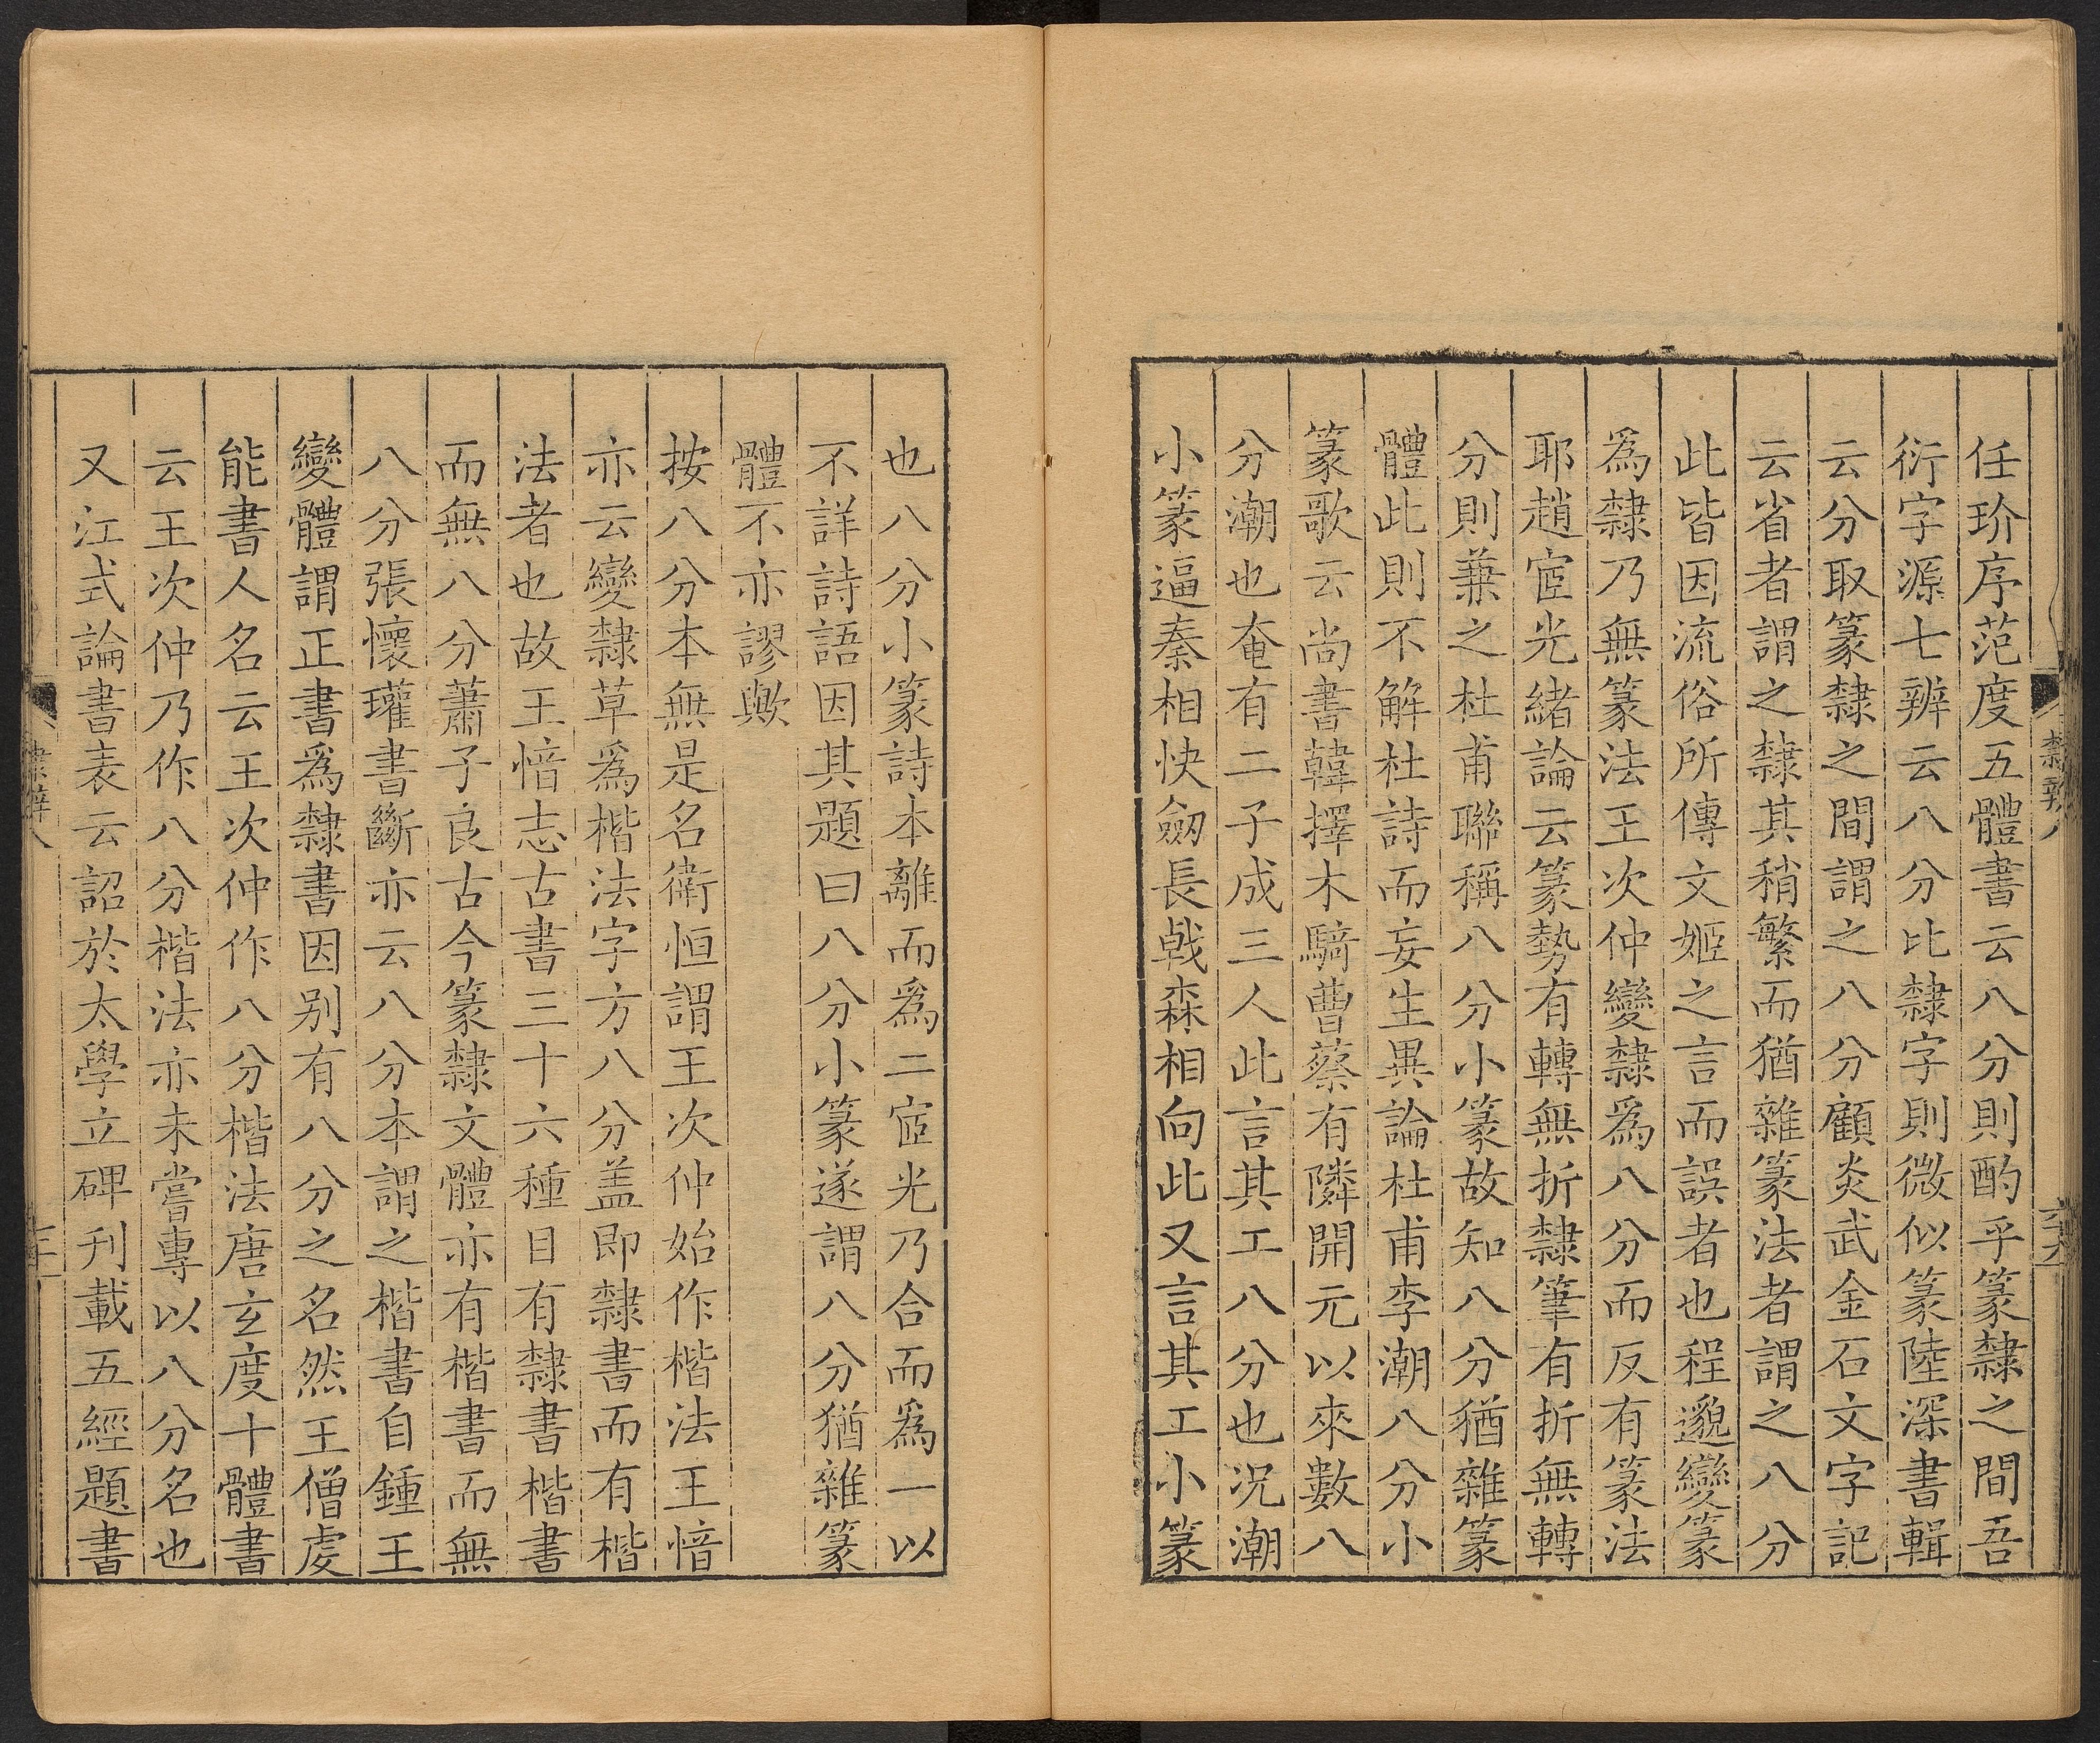 任玠序范度五體書云八分則酌乎篆隸之間吾
衍字源七辨云八分比隸字則微似篆陸深書輯
云分取篆隸之間謂之八分顧炎武金石文字記
云省者謂之隸其稍繁而猶雜篆法者謂之八分
此皆因流俗所傳文姬之言而誤者也程邈變篆
爲隸乃無篆法王次仲變隸爲八分而反有篆法
耶趙宧光緒論云篆勢有轉無折隸筆有折無轉
分則兼之杜甫聯稱八分小篆故知八分猶雜篆
體此則不解杜詩而妄生異論杜甫李潮八分小
篆歌云尚書韓擇木騎曹蔡有隣開元以來數八
分潮也奄有二子成三人此言其工八分也況潮
小篆逼秦相快劒長戟森相向此又言其工小篆
隸辨八
也八分小篆詩本離而爲二宧光乃合而爲一以
不詳詩語因其題曰八分小篆遂謂八分猶雜篆
體不亦謬歟
按八分本無是名衛恒謂王次仲始作楷法王愔
亦云變隸草爲楷法字方八分盖即隸書而有楷
法者也故王愔志古書三十六種目有隸書楷書
而無八分蕭子良古今篆隸文體亦有楷書而無
八分張懷瓘書斷亦云八分本謂之楷書自鍾王
變體謂正書爲隸書因别有八分之名然王僧虔
能書人名云王次仲作八分楷法唐玄度十體書
云王次仲乃作八分楷法亦未嘗專以八分名也
又江式論書表云詔於太學立碑刊載五經題書
隸辨八